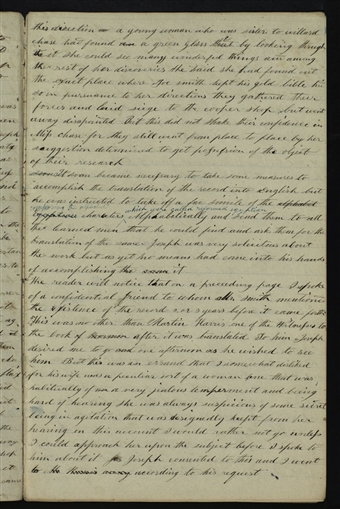 this direction a young woman who was sister to willard
chase had found a green glass by looking through
it she could see many wonderful things and among
the rest of her discoveries she said she had found out
the exact place where Joe smith kept his gold bible hid
so in pursuance to her directions they gathered their
forces and laid siege to the cooper shop but went
away disapointed But this did not shake their confidence in
Miss chase for they still went from place to place by her
suggestion determined to get possession of the object
of their research
soon it became necessary to take some measures to
accomplish the translation of the record into English but
he was instructed to take off a fac simile of the alphabet
which were called reformed egyptian
characters Alphabetically and send them to all
the learned men that he could find and ask them for the
translation of the same Joseph was very solicitous about
the work but as yet no means had come into his hands
of accomplishing it
The reader will notice that on a preceeding page I spoke
of a confidential friend to whom smith mentioned
the existence of the record 2 or 3 years before it came forth
This was no other than Martin Harris one of the Witnesses to
the book of Mormon after it was translated So him Joseph
desired me to go and see afternoon as he wished to see
him But this was an errand that I somewhat disliked
for his wife was a peculiar sort of a woman one that was
habitually of a very jealous temperament and being
hard of hearing she was always suspicious of some secret
being in agitation that was designedly kept from her
hearing on this account I would rather not go unless
I could approach her upon the subject before I spoke to
him about it Joseph consented to this and I went
to according to his request